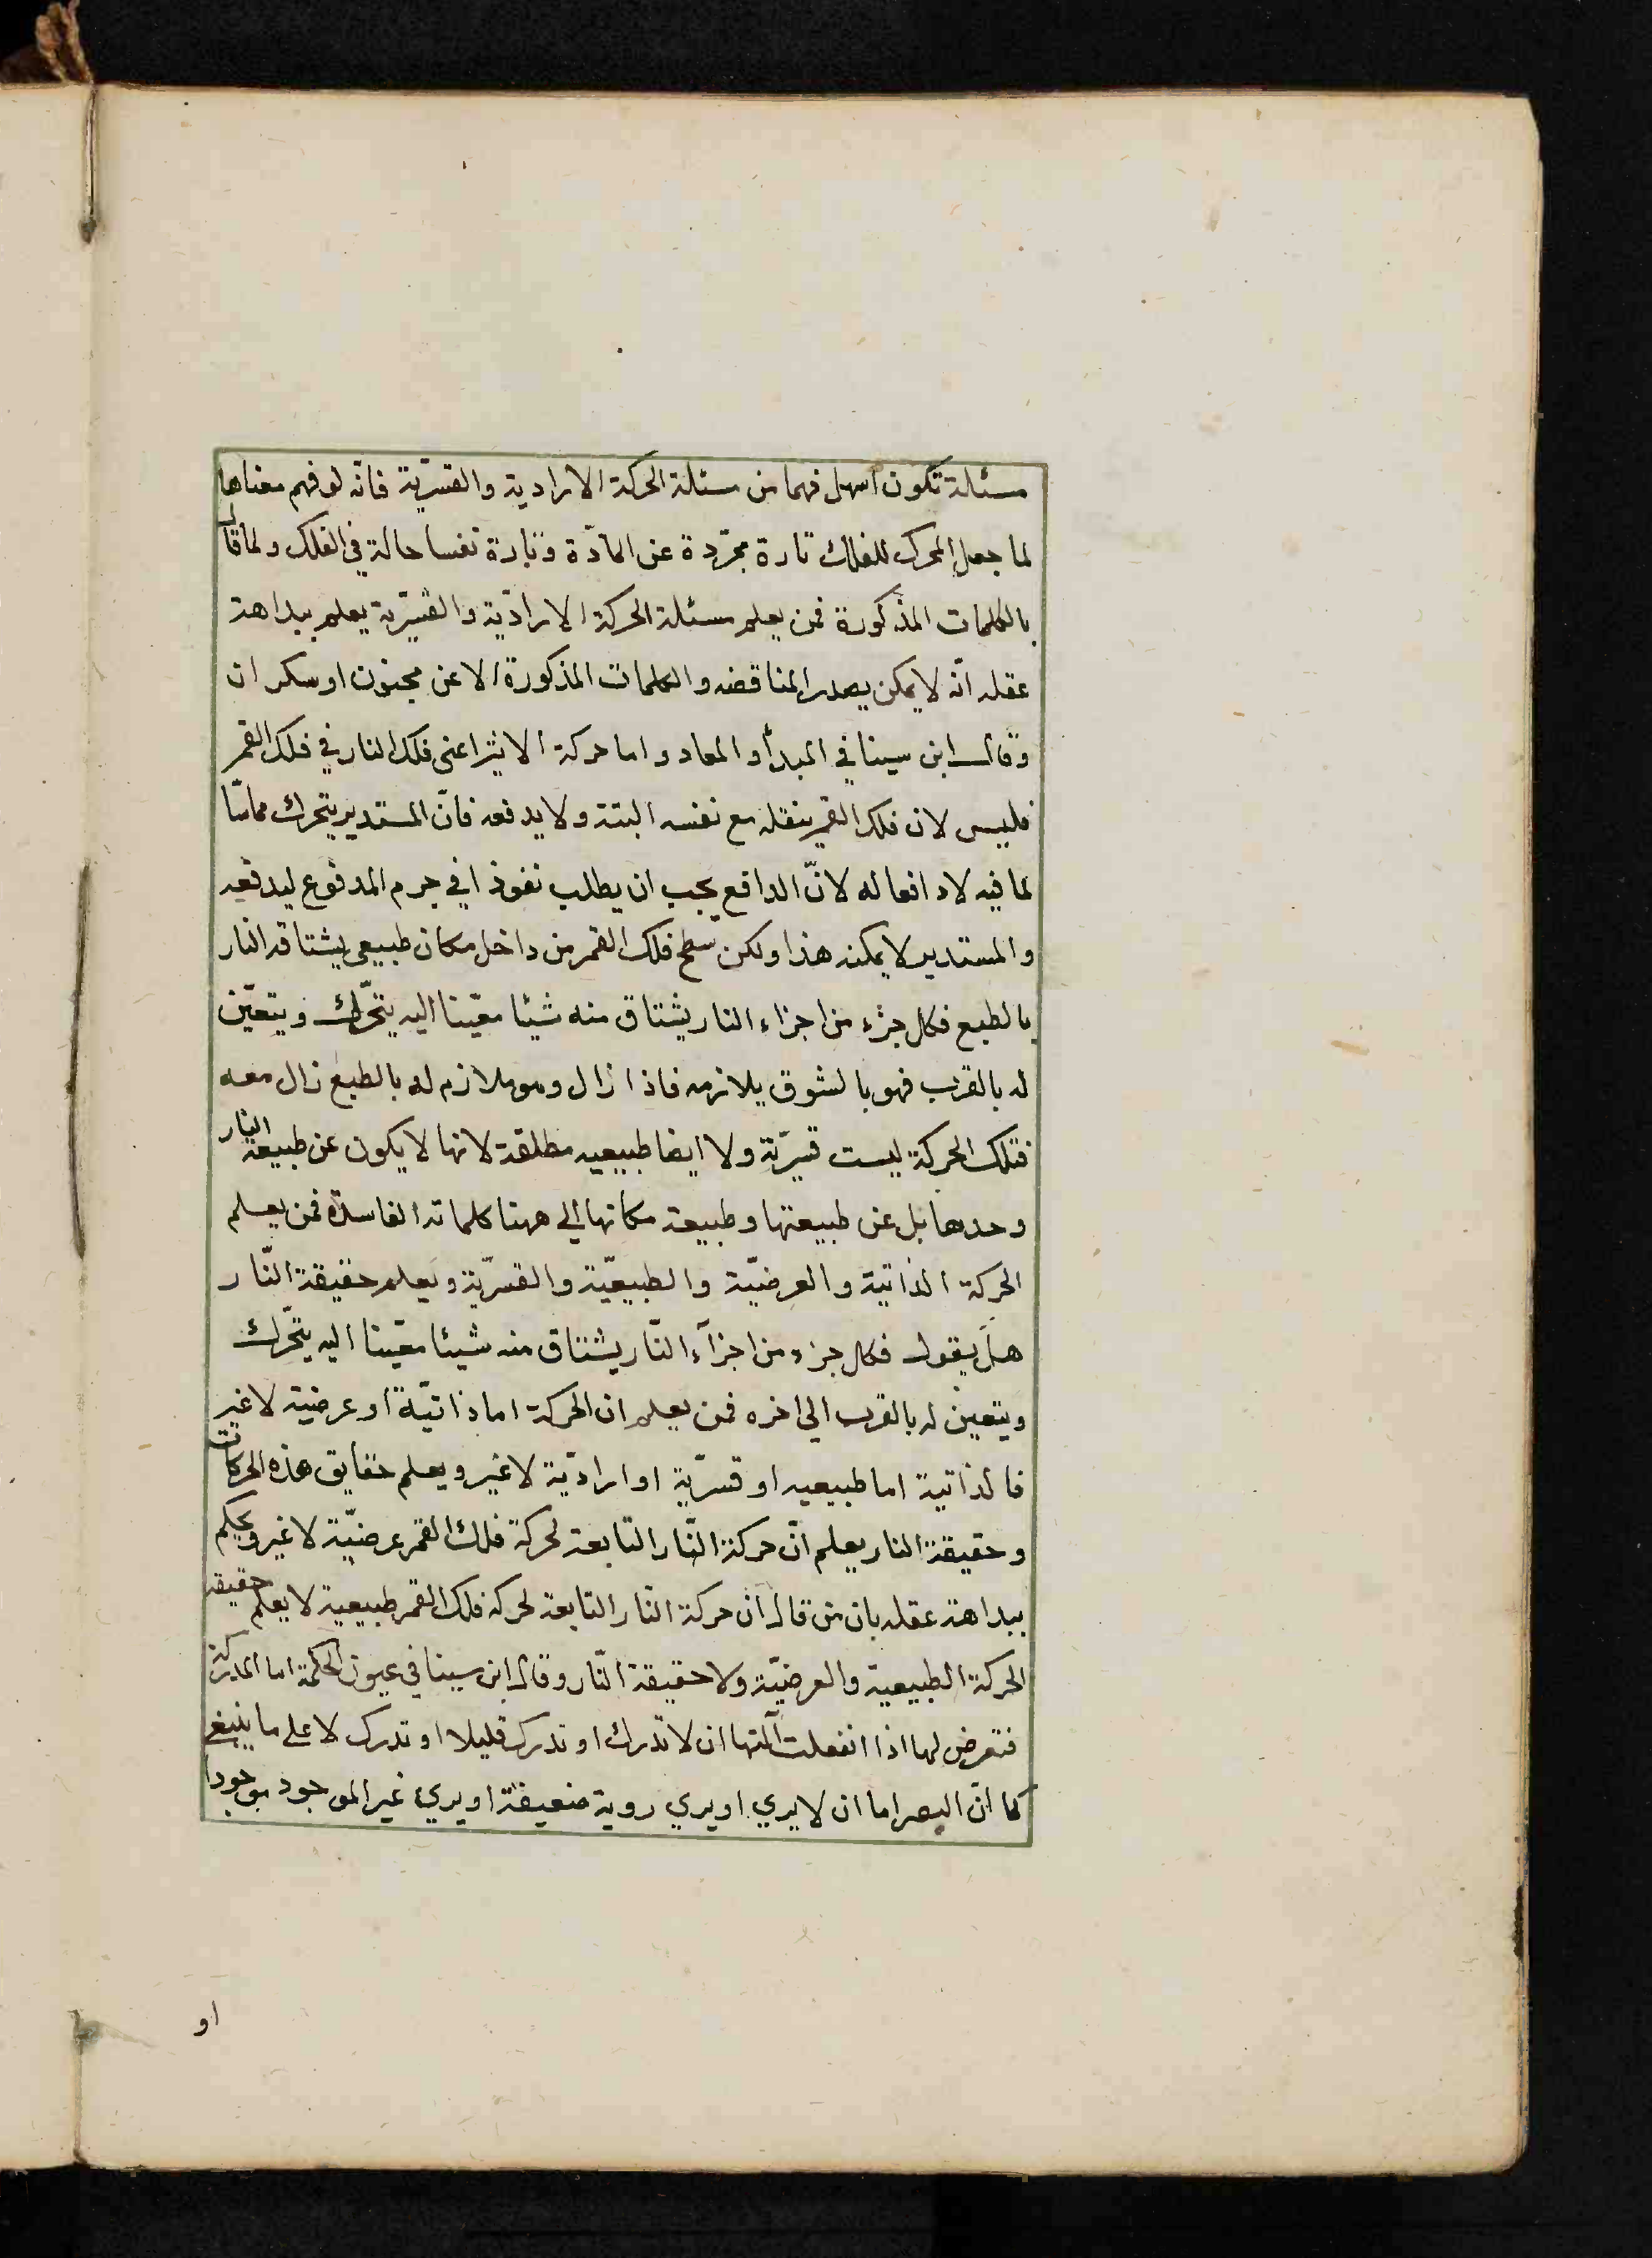 مسئلة تكون اسهل فهما من مسئلة الحركة الارادية والقسّرية فانّه لو فهم معناها
لما جعل المحرك للفلك تارة مجرّدة عن المادّة وتارة نفسا حالة في الفلك ولما قال
بالكلمات المذكورة فمن يعلم مسئلة الحركة الارادّية والقسّرية يعلم ببداهة
عقله انّه لا يمكن يصدر المناقضه والكلمات المذكورة الا عن مجنون او سكران
وقال ابن سينا في المبدأ والمعاد واما حركة الاثير اعنى فلك النار في فلك القمر
فليس لان فلك القمر ينقله مع نفسه البتة ولا يدفعه فانّ المستدير يتحرك مماسّا
لما فيه لا دافعا له لانّ الدافع يجب ان يطلب نفوذا في جرم المدفوع ليدفعه
والمستدير لا يمكنه هذا ولكن سطح فلك القمر من داخل مكان طبيعي يشتاقه النار
بالطبع فكل جزء من اجزاء النار يشتاق منه شيئا معّينا اليه يتحّرك ويتعيّن
له بالقرب فهو بالشوق يلازمه فاذا زال وهو ملازم له بالطبع زال معه
فتلك الحركة ليست قسرّية ولا ايضا طبيعيه مطلقة لانها لا يكون عن طبيعة النار
وحدها بل عن طبيعتها وطبيعة مكانها الى ههنا كلماته الفاسدة فمن يعلم
الحركة الذاتية والعرضيّة والطبيعيّة والقسرّية ويعلم حقيقة النّار
هل يقول فكل جزء من اجزآء النّار يشتاق منه شيئا معّينا اليه يتحّرك
ويتعين له بالقرب الى اخره فمن يعلم ان الحركة اما ذاتيّة او عرضية لا غير
فالذاتية اما طبيعيه او قسرّية او ارادّية لا غير ويعلم حقايق هذه الحركات
وحقيقة النار يعلم انّ حركة النّار التابعة لحركة فلك القمر عرضيّة لا غير ويحكم
ببداهة عقله بان من قال ان حركة النّار التابعة لحركة فلك القمر طبيعية لا يعلم حقيقة
الحركة الطبيعية والعرضيّة ولا حقيقة النّار وقال ابن سينا في عيون الحكمة اما المدركة
فتعرض لها اذا انفعلت آلتها ان لا تدرك او تدرك قليلا او تدرك لا على ما ينبغي
كما انّ البصر اما ان لا يري او يري روية ضعيفة او يري غير الموجود موجودا
او